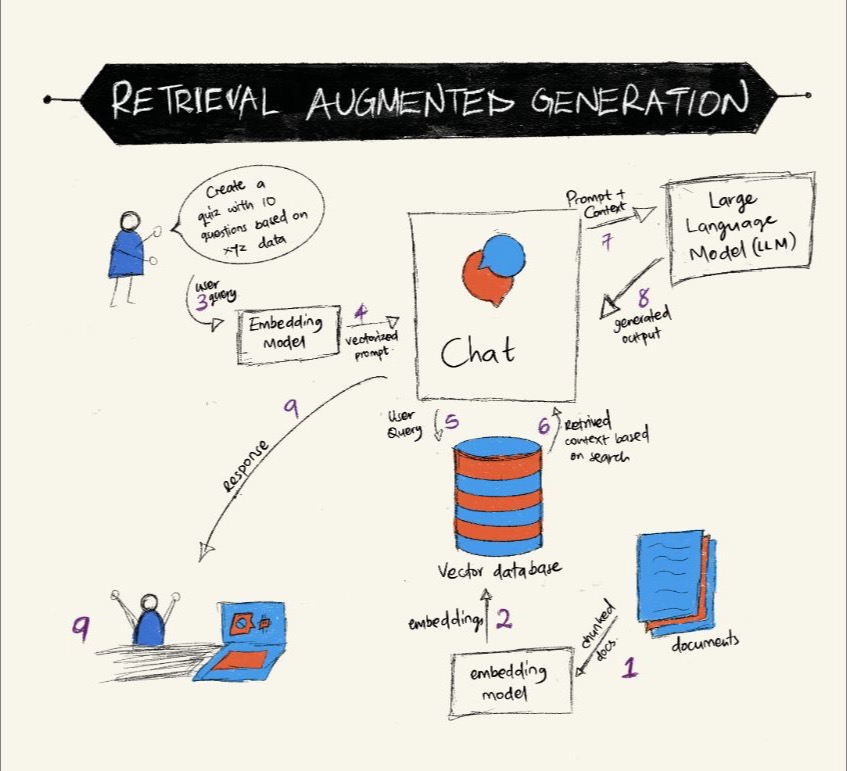 RETRIEVAL AUGMENTED GENERATION
Create a
quiz with 10
questions based on
xyz data
user
3 query
Embedding
Model
4
vectorized
prompt
Chat
Prompt +
Context
7
Large
Language
Model (LLM)
8
generated
output
9
Response
User
Query
5
6
Retrived
context based
on search
Vector database
embeddings
2
embedding
model
chunked
docs
1
documents
9